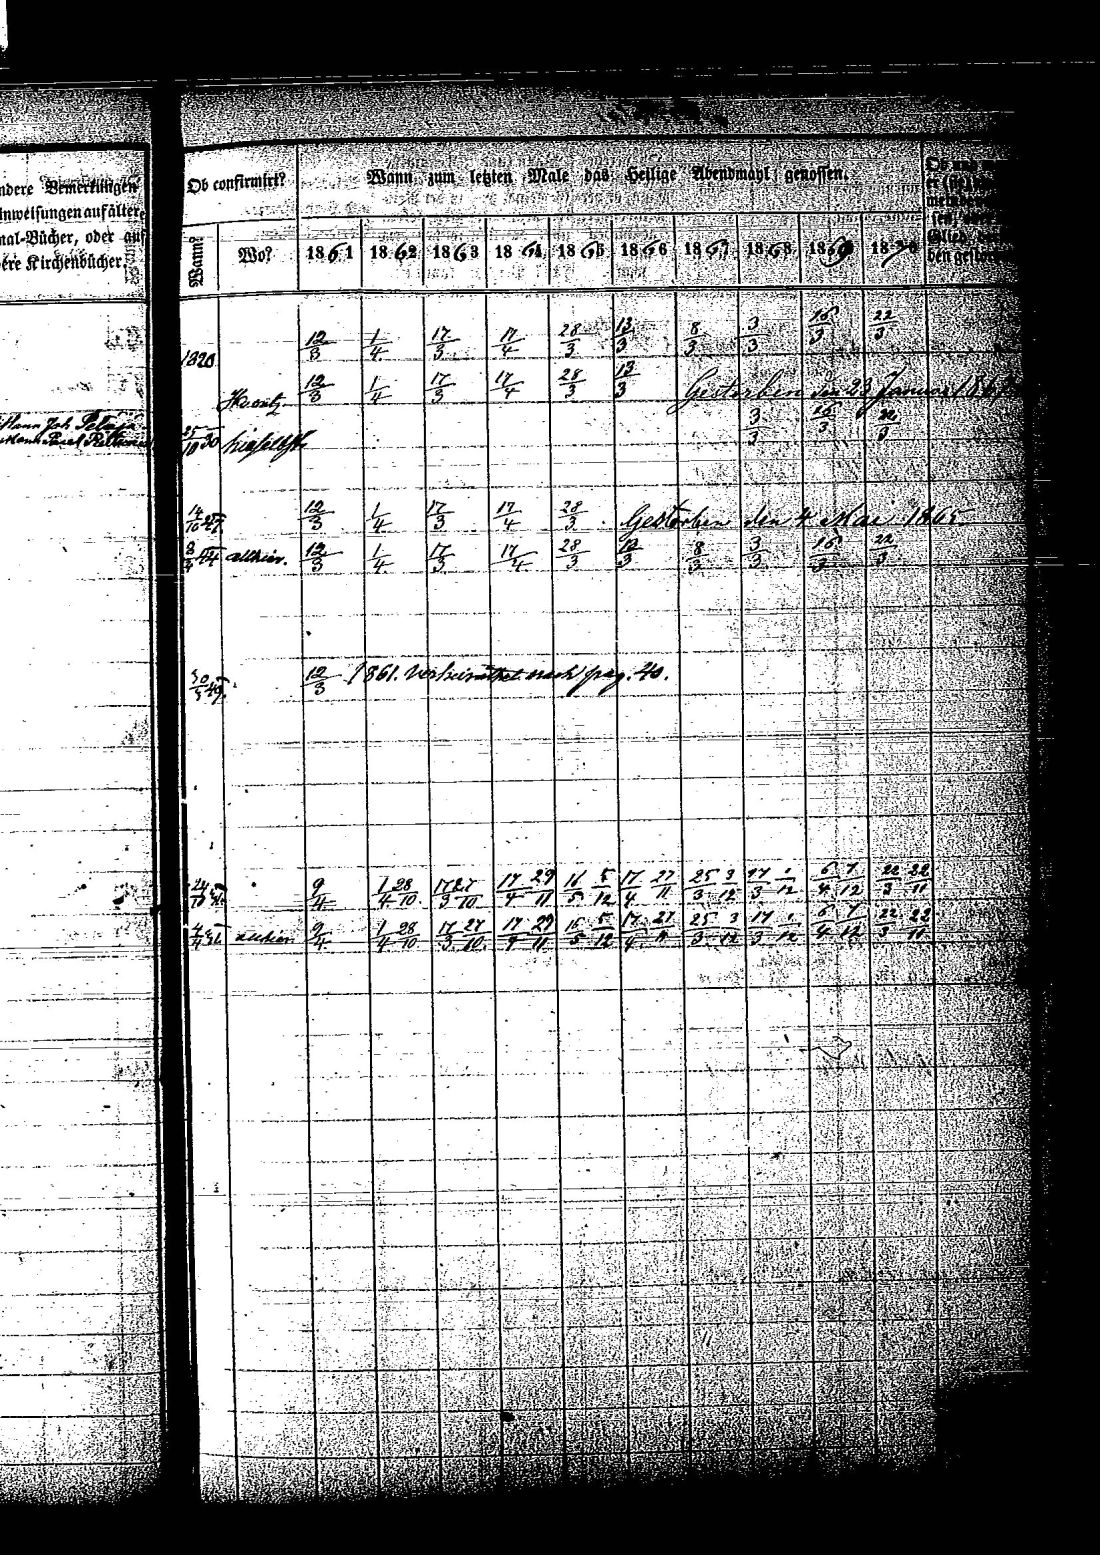 ndere Bemerkungen
inweisungen auf ältere
nal-Bücher, oder auf
ere Kirchenbücher.
Ob confirmirt?
Wann?
Wo?
Wann zum letzten Male das Heilige Abendmahl genossen.
1861 1862 1863 1864 1865 1866 1867 1868 1869 1870
Ob und
er (sie)
Glied
ben gestor
1820 12/3 1/4 17/3 17/4 28/3 13/3 8/3 3/3 16/3 22/3
12/3 1/4 17/3 17/4 28/3 13/3 Gestorben den 23 Januar 186
Mann Joh.
25/10 30 hieselbst 3/3 16/3 22/3
14/10 12/3 1/4 17/3 17/4 28/3 Gestorben den 4 Mai 1865
8/ 44 allhier. 12/3 1/4 17/3 17/4 28/3 13/3 8/3 3/3 16/3 22/3
30/5 49. 12/3 1861. Verheirathet nach pag. 40.
24/ 9/4 1/4 28/10 17/3 27/10 17/4 29/11 16/5 5/12 17/4 27/11 25/3 3/12 17/3 1/12 6/4 7/12 22/3 22/11
4/4 allhier 9/4 1/4 28/10 17/3 27/10. 17/4 29/11 16/5 5/12 17/4 27/11 25/3 3/12 17/3 1/12 6/4 7/12 22/3 22/11